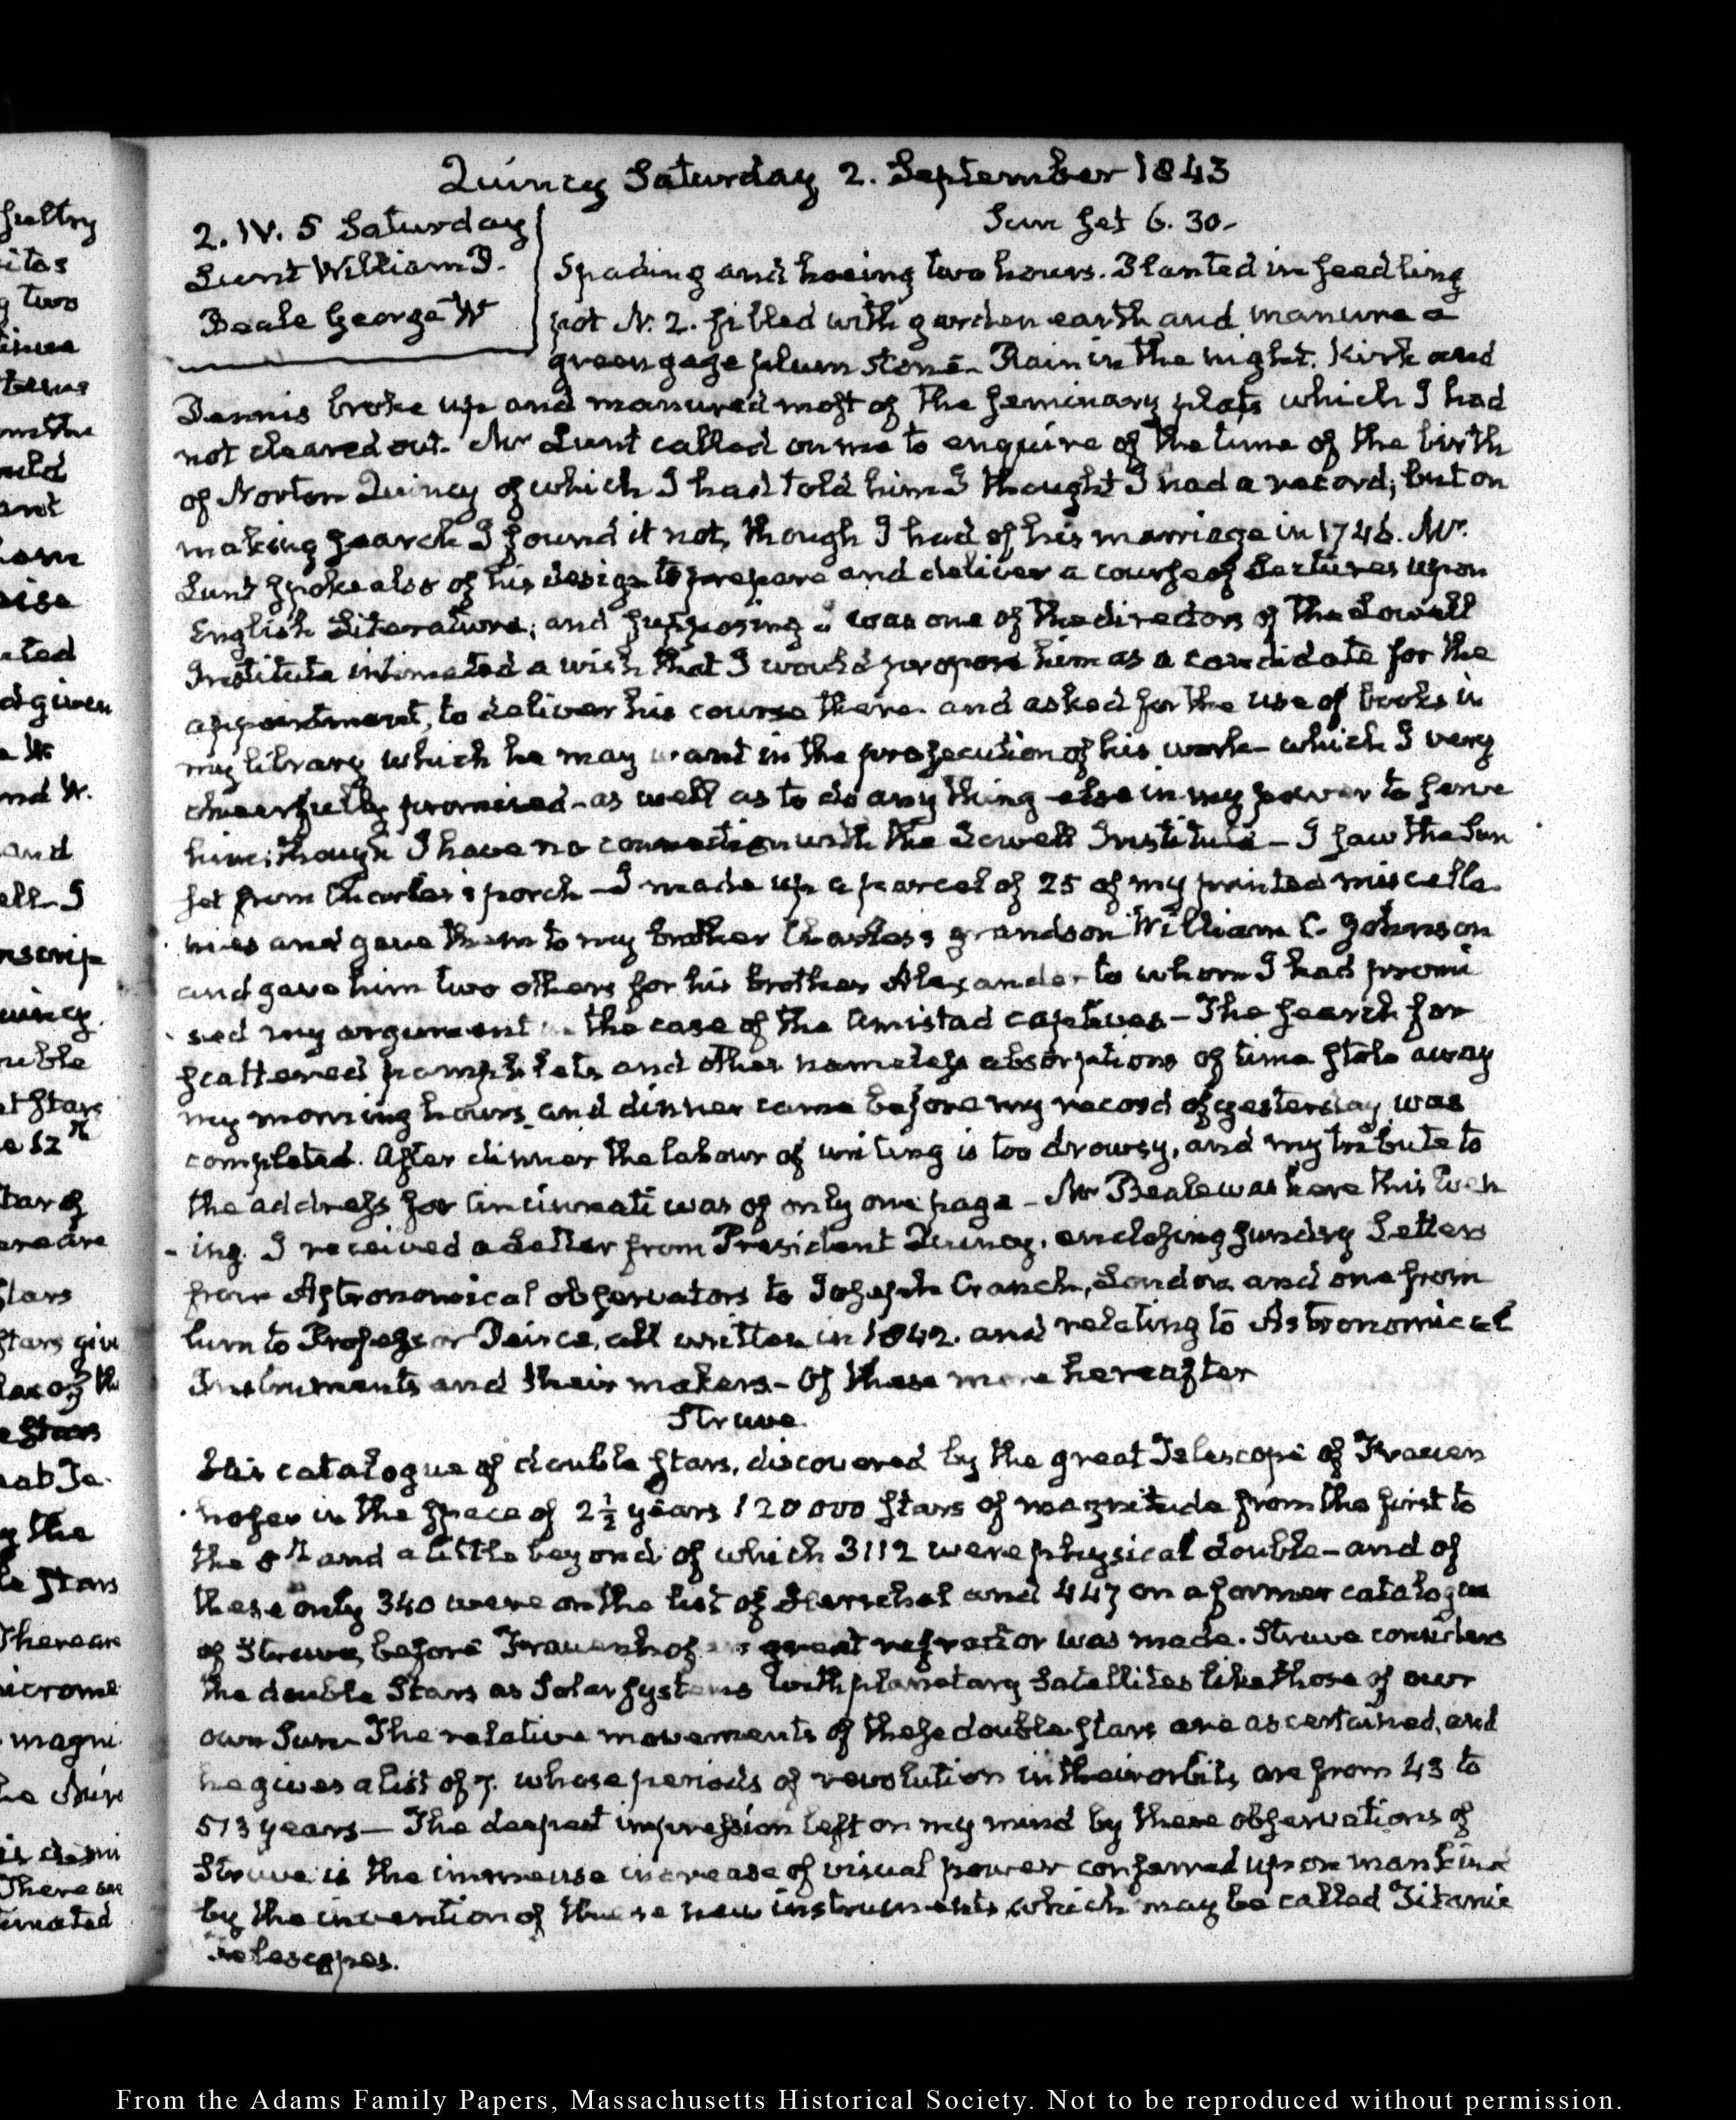 Quincy Saturday 2. September 1843
2. IV. 5 Saturday
Lunt William P.
Beale George W
Sun set 6. 30-
Spading and hoeing two hours. Planted in seedling
pot N. 2. filled with garden earth and manure a
green gage plum stone- Rain in the night. Kirk and
Dennis broke up and manured most of the seminary plats which I had
not cleared out. Mr Lunt called on me to enquire of the time of the birth
of Norton Quincy of which I had told him I thought I had a record; but on
making search I found it not, though I had of his marriage in 1745. Mr.
Lunt spoke also of his design to prepare and deliver a course of Lectures upon
English Literature; and supposing I was one of the directors of the Lowell
Institute intimated a wish that I would propose him as a candidate for the
appointment, to deliver his course there. and asked for the use of books in
my library which he may want in the prosecution of his work- which I very
cheerfully promised- as well as to do any thing else in my power to serve
him; though I have no connection with the Lowell Institute- I saw the Sun
set from Charles's porch- I made up a parcel of 25 of my printed miscella
nies and gave them to my brother Charles's grandson William C. Johnson
and gave him two others for his brother Alexander to whom I had promi
sed my argument in the case of the Amistad captives- The search for
scattered pamphlets and other nameless absorptions of time stole away
my morning hours and dinner came before my record of yesterday was
completed. After dinner the labour of writing is too drowsy, and my tribute to
the address for Cincinnati was of only one page- Mr Beale was here this Even
ing. I received a Letter from President Quincy, enclosing sundry Letters
from Astronomical observators to Joseph Cranch, London and one from
him to Professor Peirce, all written in 1842. and relating to Astronomical
Instruments and their makers- Of these more hereafter
Struve
His catalogue of double stars, discovered by the great Telescope of Frauen
hofer in the space of 2½ years 120000 stars of magnitude from the first to
the 8th and a little beyond of which 3112 were physical double- and of
these only 340 were on the list of Herschel and 447 on a former catalogue
of Struve, before Frauenhofer's great refractor was made. Struve considers
the double Stars as Solar systems with planetary Satellites like those of our
own Sun- The relative movements of these double stars are ascertained, and
he gives a list of 7. whose periods of revolution in their orbits are from 43 to
513 years- The deepest impression left on my mind by these observations of
Struve is the immense increase of visual power conferred upon mankind
by the invention of these new instruments, which may be called Titanic
Telescopes.
From the Adams Family Papers, Massachusetts Historical Society. Not to be reproduced without permission.